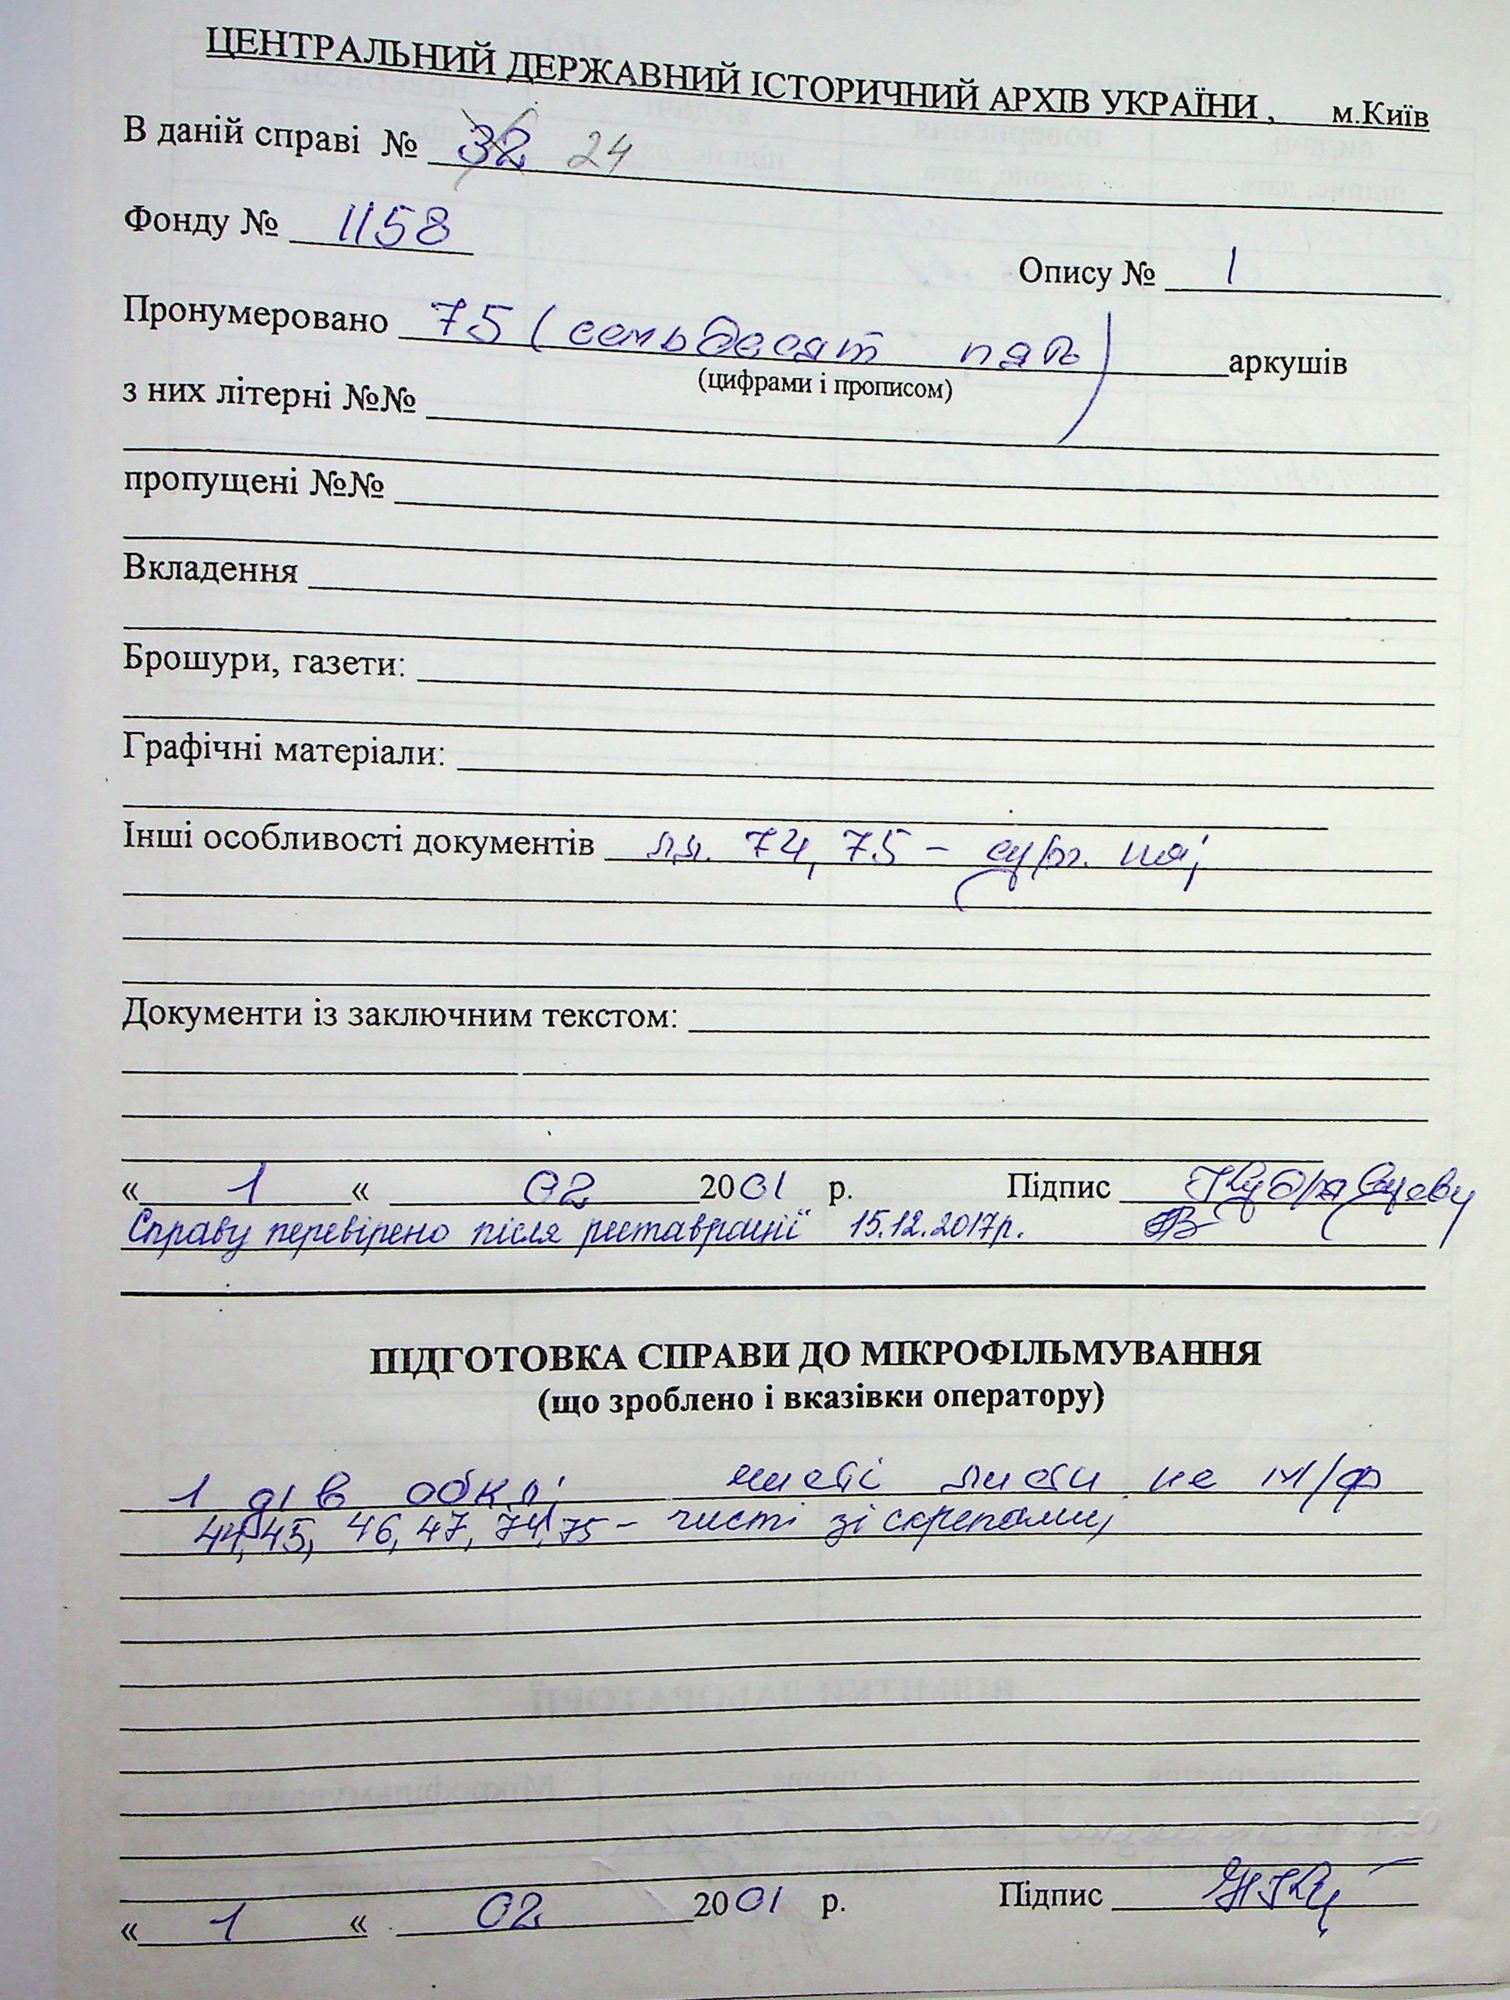 ЦЕНТРАЛЬНИЙ ДЕРЖАВНИЙ ІСТОРИЧНИЙ АРХІВ УКРАЇНИ, м.Київ
В даній справі № 32 24
Фонду № 1158
Опису № 1
Пронумеровано 75 (семьдесят пять) аркушів
(цифрами і прописом)
з них літерні №№
пропущені №№
Вкладення
Брошури, газети:
Графічні матеріали:
Інші особливості документів л.л. 74, 75 –
Документи із заключним текстом:
« 1 « 02 2001 р. Підпис
Справу перевірено після реставрації 15.12.2017р.
ПІДГОТОВКА СПРАВИ ДО МІКРОФІЛЬМУВАННЯ
(що зроблено і вказівки оператору)
1 обкл; чисті листи не м/ф
44, 45, 46, 47, 74, 75 – чисті зі скрепами,
« 1 « 02 2001 р. Підпис